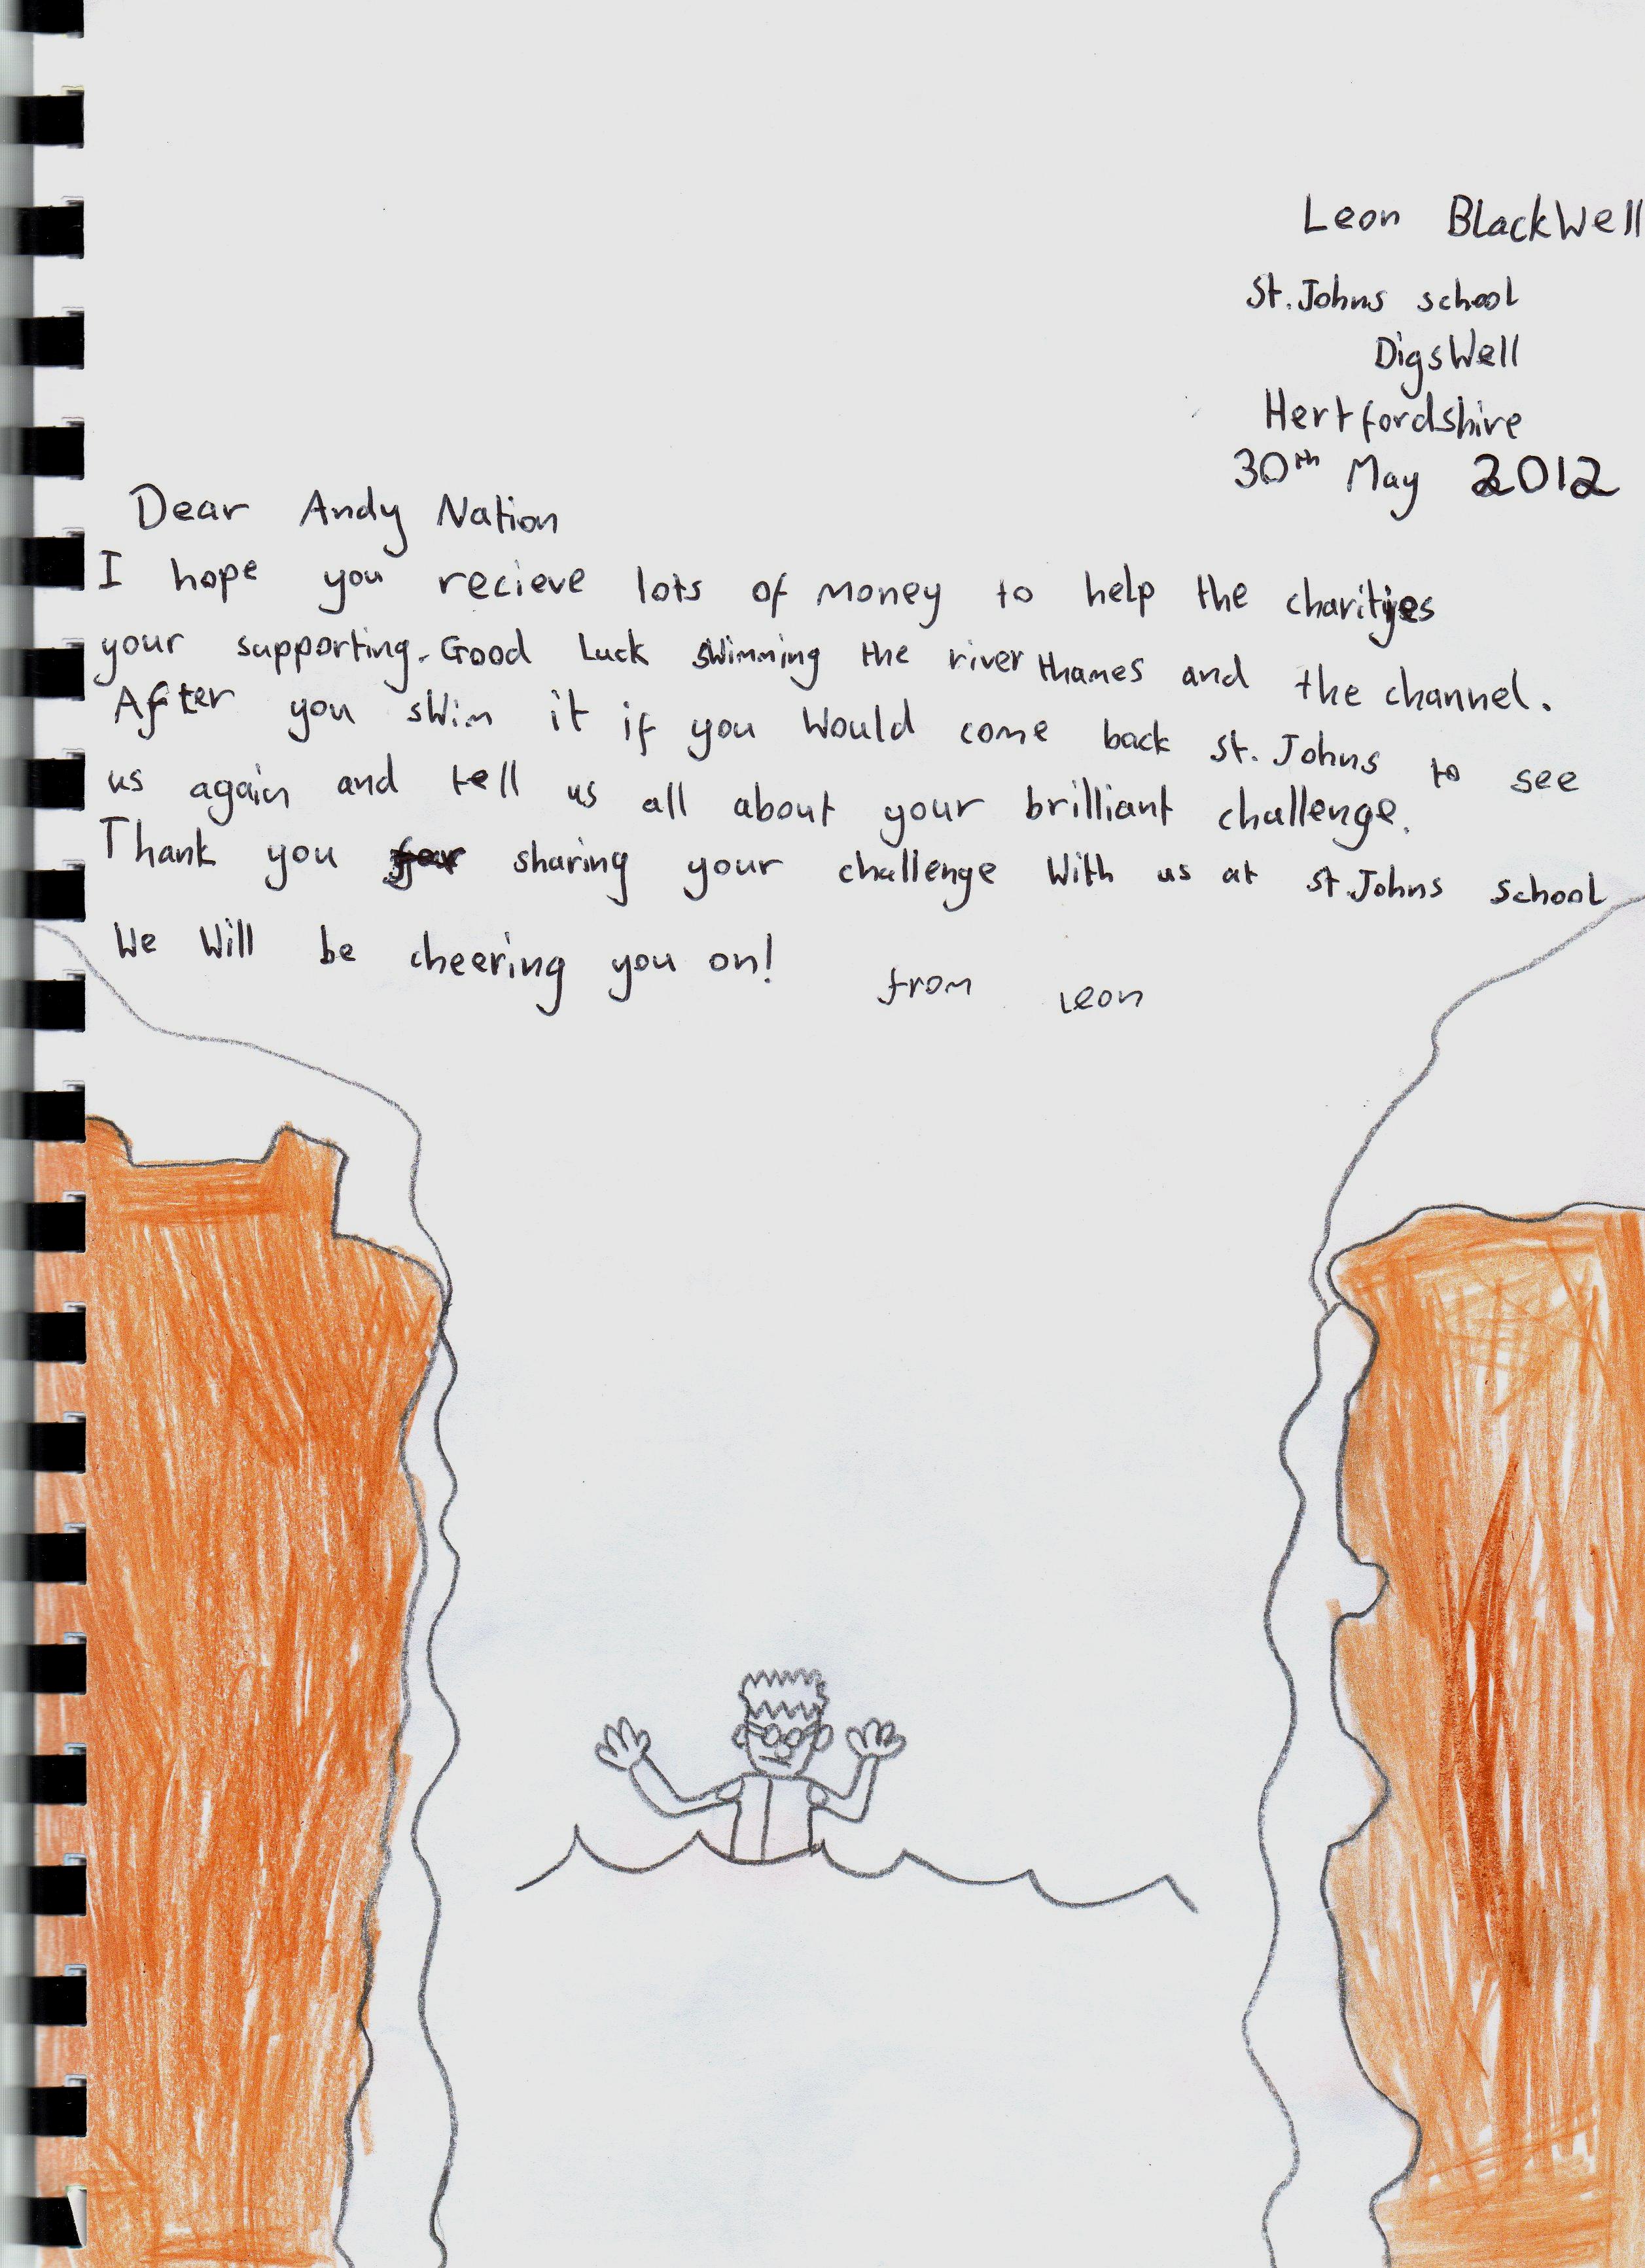 Leon BlackWell
St. Johns school
DigsWell
Hertfordshire
30th May 2012
Dear Andy Nation
I hope you recieve lots of money to help the charities
your supporting. Good Luck swimming the river thames and the channel.
After you swim it if you would come back St. Johns to see
us again and tell us all about your brilliant challenge.
Thank you for sharing your challenge with us at St. Johns school
We will be cheering you on! from Leon